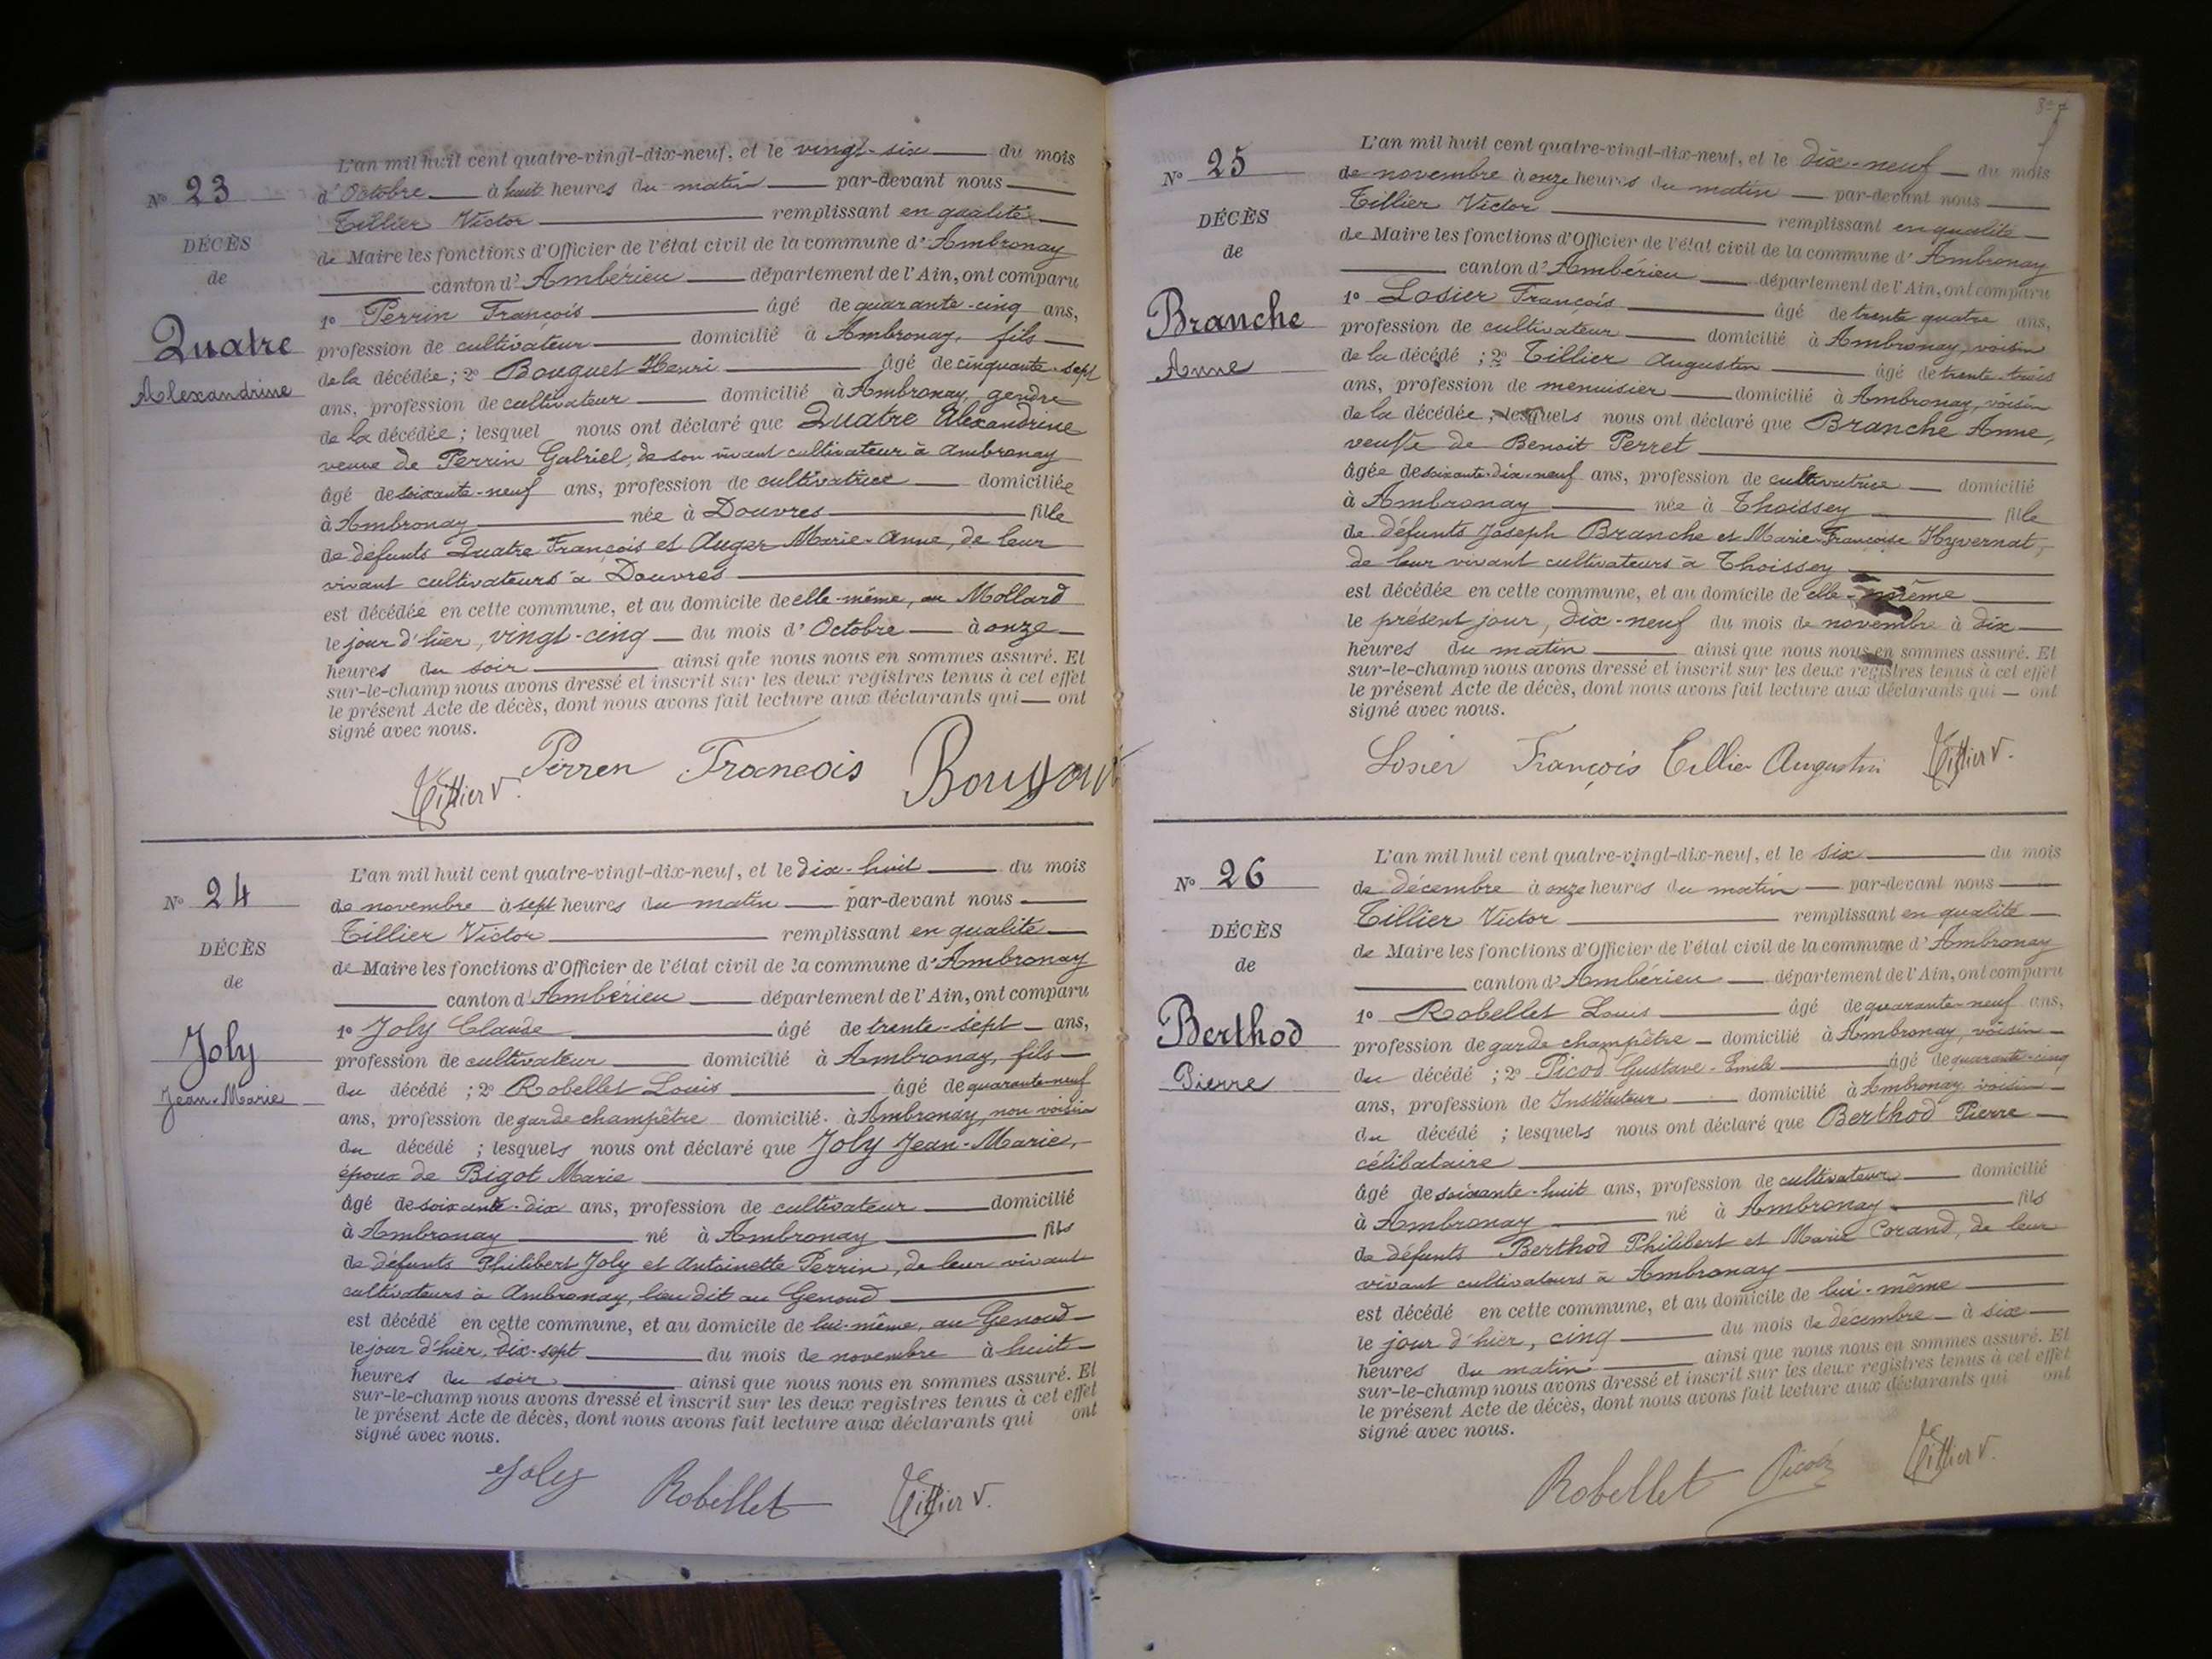 N° 23
DÉCÈS
de
Quatre
Alexandrine
L'an mil huit cent quatre-vingt-dix-neuf, et le vingt-six du mois
d'Octobre à huit heures du matin par-devant nous
Tillier Victor remplissant en qualité
de Maire les fonctions d'Officier de l'état civil de la commune d'Ambronay
canton d'Ambérieu département de l'Ain, ont comparu
1° Perrin François âgé de quarante-cinq ans,
profession de cultivateur domicilié à Ambronay, fils
de la décédée ; 2° Bouguet Henri âgé de cinquante-sept
ans, profession de cultivateur domicilié à Ambronay, gendre
de la décédée ; lesquel nous ont déclaré que Quatre Alexandrine
veuve de Perrin Gabriel, de son vivant cultivateur à Ambronay
âgé de soixante-neuf ans, profession de cultivatrice domiciliée
à Ambronay née à Douvres fille
de défunts Quatre François et Auger Marie-Anne, de leur
vivant cultivateurs à Douvres
est décédée en cette commune, et au domicile de elle-même, au Mollard
le jour d'hier, vingt-cinq du mois d'Octobre à onze
heures du soir ainsi que nous nous en sommes assuré. Et
sur-le-champ nous avons dressé et inscrit sur les deux registres tenus à cet effet
le présent Acte de décès, dont nous avons fait lecture aux déclarants qui ont
signé avec nous.
Tillier V. Perren Francois
N° 24
DÉCÈS
de
Joly
Jean-Marie
L'an mil huit cent quatre-vingt-dix-neuf, et le dix-huit du mois
de novembre à sept heures du matin par-devant nous
Tillier Victor remplissant en qualité
de Maire les fonctions d'Officier de l'état civil de la commune d'Ambronay
canton d'Ambérieu département de l'Ain, ont comparu
1° Joly Claude âgé de trente-sept ans,
profession de cultivateur domicilié à Ambronay, fils
du décédé ; 2° Robellet Louis âgé de quarante-neuf
ans, profession de garde champêtre domicilié à Ambronay, non voisin
du décédé ; lesquels nous ont déclaré que Joly Jean-Marie,
époux de Bigot Marie
âgé de soixante-dix ans, profession de cultivateur domicilié
à Ambronay né à Ambronay fils
de défunts Philibert Joly et Antoinette Perrin, de leur vivant
cultivateurs à Ambronay, lieu dit au Genoud
est décédé en cette commune, et au domicile de lui-même, au Genoud
le jour d'hier, dix-sept du mois de novembre à huit
heures du soir ainsi que nous nous en sommes assuré. Et
sur-le-champ nous avons dressé et inscrit sur les deux registres tenus à cet effet
le présent Acte de décès, dont nous avons fait lecture aux déclarants qui ont
signé avec nous.
Joly Robellet Tillier V.
N° 25
DÉCÈS
de
Branche
Anne
L'an mil huit cent quatre-vingt-dix-neuf, et le dix-neuf du mois
de novembre à onze heures du matin par-devant nous
Tillier Victor remplissant en qualité
de Maire les fonctions d'Officier de l'état civil de la commune d'Ambronay
canton d'Ambérieu département de l'Ain, ont comparu
1° Losier François âgé de trente quatre ans,
profession de cultivateur domicilié à Ambronay, voisin
de la décédé ; 2° Tillier Augustin âgé de trente-trois
ans, profession de menuisier domicilié à Ambronay, voisin
de la décédée ; lesquels nous ont déclaré que Branche Anne,
veuve de Benoit Perret
âgée de soixante-dix-neuf ans, profession de cultivatrice domicilié
à Ambronay née à Thoissey fille
de défunts Joseph Branche et Marie-Françoise Hyvernat,
de leur vivant cultivateurs à Thoissey
est décédée en cette commune, et au domicile de elle-même
le présent jour, dix-neuf du mois de novembre à dix
heures du matin ainsi que nous nous en sommes assuré. Et
sur-le-champ nous avons dressé et inscrit sur les deux registres tenus à cet effet
le présent Acte de décès, dont nous avons fait lecture aux déclarants qui ont
signé avec nous.
Losier François Tillier Augustin Tillier V.
N° 26
DÉCÈS
de
Berthod
Pierre
L'an mil huit cent quatre-vingt-dix-neuf, et le six du mois
de décembre à onze heures du matin par-devant nous
Tillier Victor remplissant en qualité
de Maire les fonctions d'Officier de l'état civil de la commune d'Ambronay
canton d'Ambérieu département de l'Ain, ont comparu
1° Robellet Louis âgé de quarante-neuf ans,
profession de garde champêtre domicilié à Ambronay, voisin
du décédé ; 2° Picod Gustave-Emile âgé de quarante-cinq
ans, profession de Instituteur domicilié à Ambronay voisin
du décédé ; lesquels nous ont déclaré que Berthod Pierre
célibataire
âgé de soixante-huit ans, profession de cultivateur domicilié
à Ambronay né à Ambronay fils
de défunts Berthod Philibert et Marie Corand, de leur
vivant cultivateurs à Ambronay
est décédé en cette commune, et au domicile de lui-même
le jour d'hier, cinq du mois de décembre à six
heures du matin ainsi que nous nous en sommes assuré. Et
sur-le-champ nous avons dressé et inscrit sur les deux registres tenus à cet effet
le présent Acte de décès, dont nous avons fait lecture aux déclarants qui ont
signé avec nous.
Robellet Picod Tillier V.